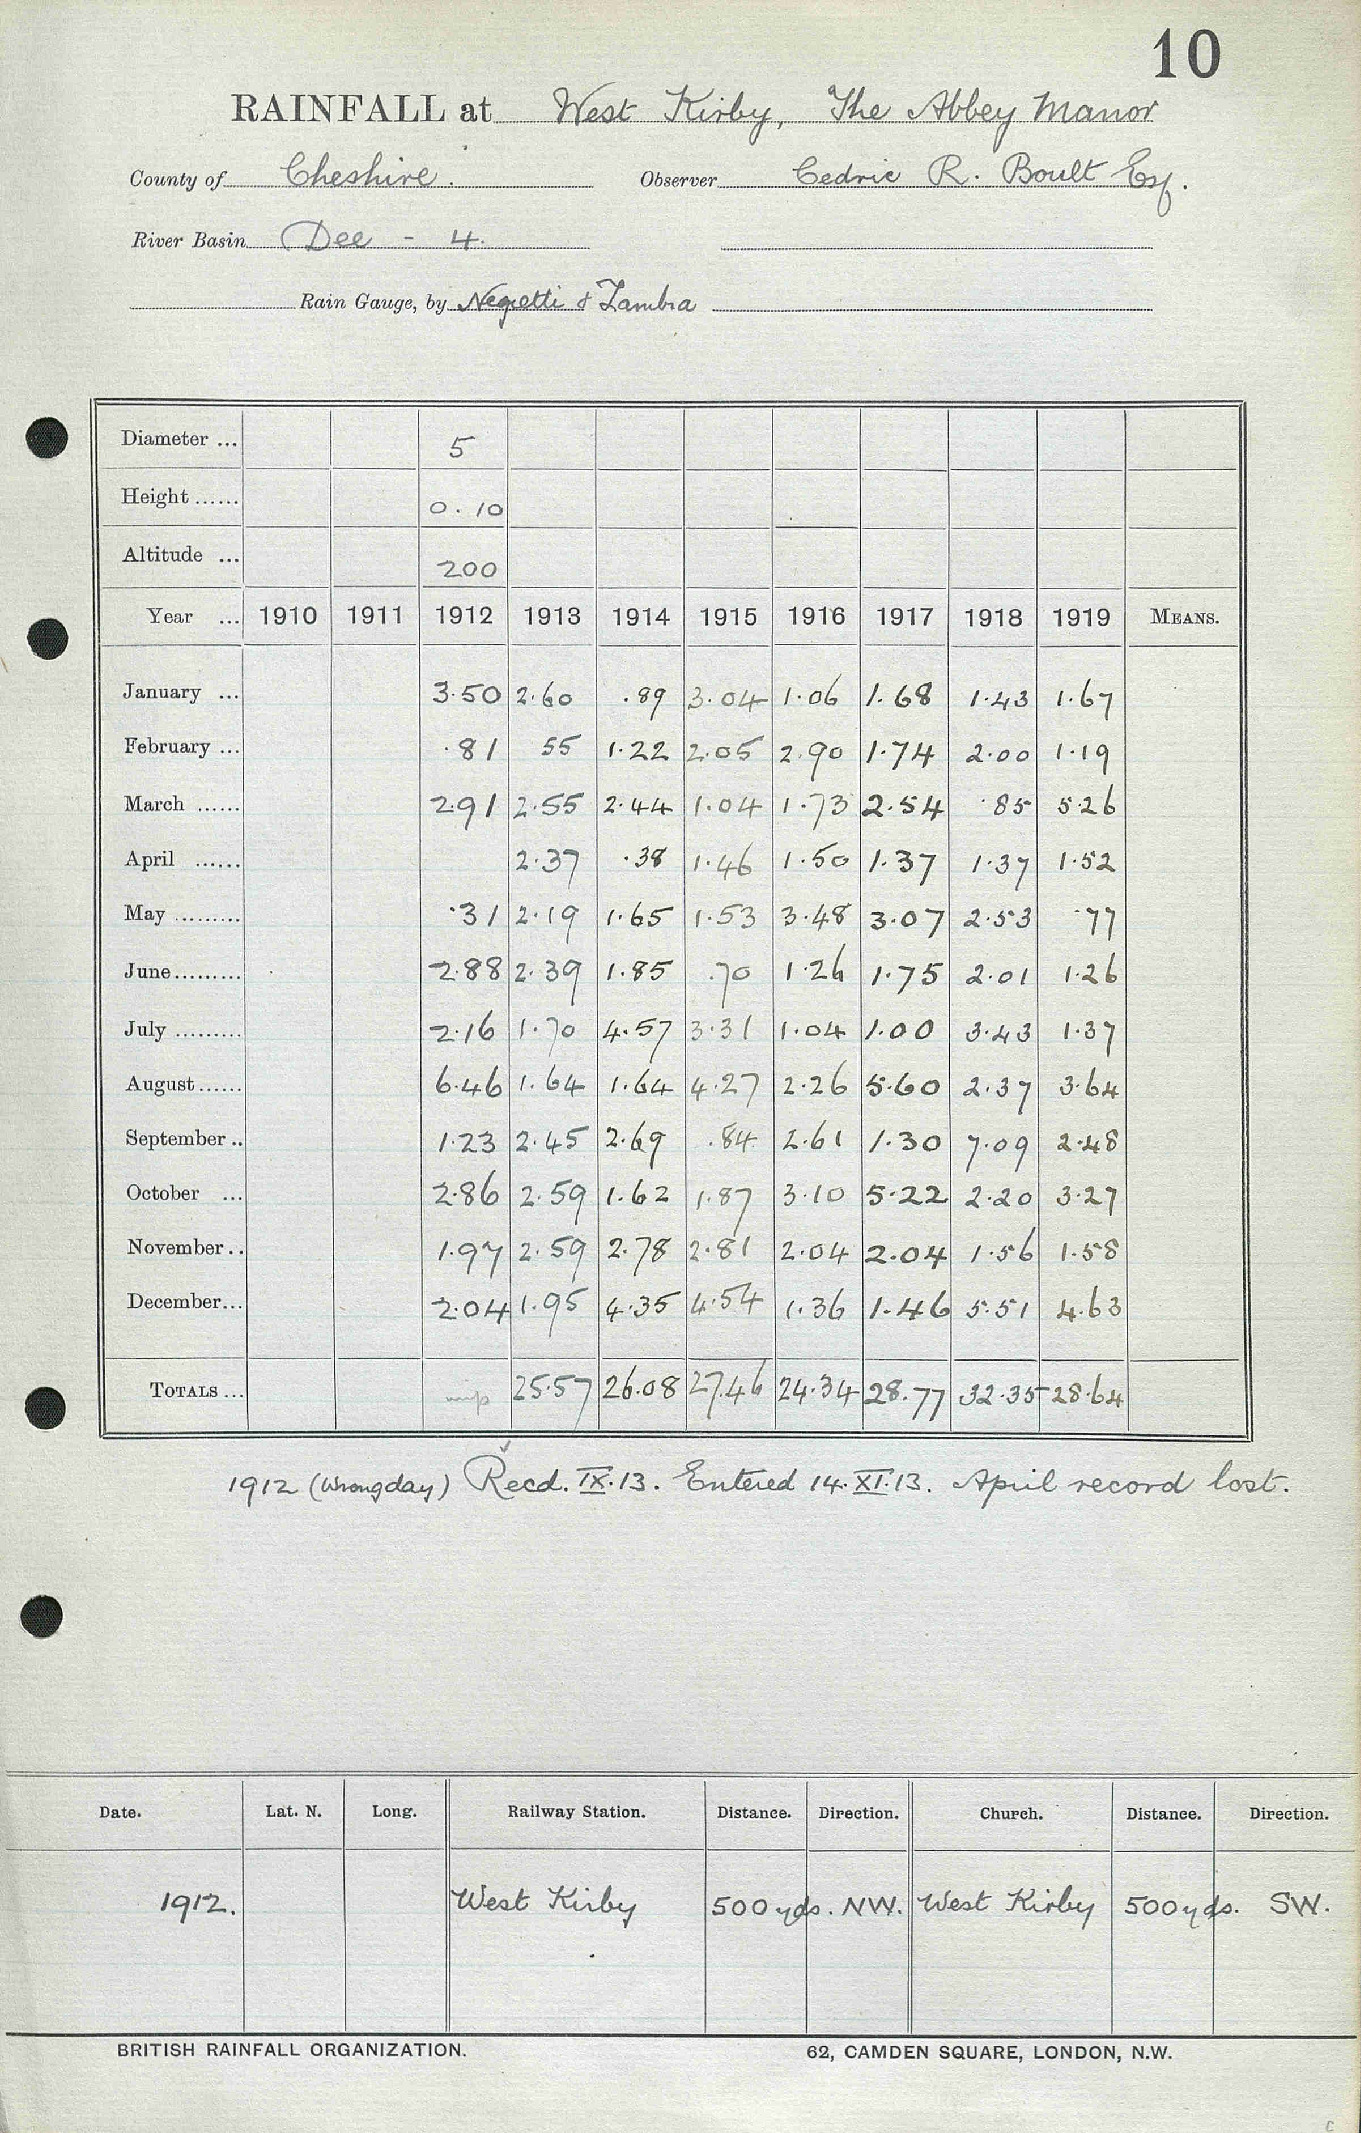 10
RAINFALL at West Kirby, The Abbey Manor
County of Cheshire. Observer Cedric R. Boult Esq.
River Basin Dee - 4.
Rain Gauge, by Negretti & Zambra
Diameter ... 5
Height ...... 0.10
Altitude ... 200
Year ... 1910 1911 1912 1913 1914 1915 1916 1917 1918 1919 MEANS.
January ... 3.50 2.60 .89 3.04 1.06 1.68 1.43 1.67
February ... .81 55 1.22 2.05 2.90 1.74 2.00 1.19
March ...... 2.91 2.55 2.44 1.04 1.73 2.54 .85 5.26
April ...... 2.37 .38 1.46 1.50 1.37 1.37 1.52
May ......... .31 2.19 1.65 1.53 3.48 3.07 2.53 .77
June......... 2.88 2.39 1.85 .70 1.26 1.75 2.01 1.26
July ......... 2.16 1.70 4.57 3.31 1.04 1.00 3.43 1.37
August...... 6.46 1.64 1.64 4.27 2.26 5.60 2.37 3.64
September .. 1.23 2.45 2.69 .84 2.61 1.30 7.09 2.48
October ... 2.86 2.59 1.62 1.87 3.10 5.22 2.20 3.27
November .. 1.97 2.59 2.78 2.81 2.04 2.04 1.56 1.58
December... 2.04 1.95 4.35 4.54 1.36 1.46 5.51 4.63
TOTALS ... 25.57 26.08 27.46 24.34 28.77 32.35 28.64
1912 (Wrong day) Recd. IX.13. Entered 14.XI.13. April record lost.
Date. Lat. N. Long. Railway Station. Distance. Direction. Church. Distance. Direction.
1912. West Kirby 500 yds. NW. West Kirby 500 yds. SW.
BRITISH RAINFALL ORGANIZATION. 62, CAMDEN SQUARE, LONDON, N.W.